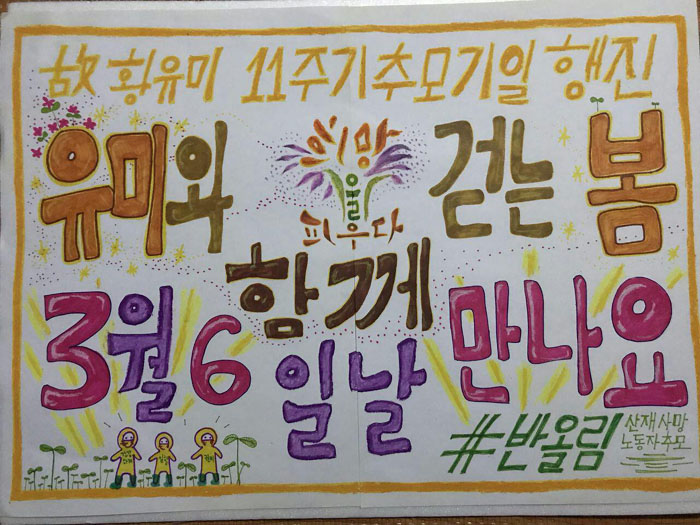 故 황유미 11주기추모기일 행진
유미와 걷는 봄
희망
을
피우다
함께
3월 6일날 만나요
#반올림
산재사망
노동자추모